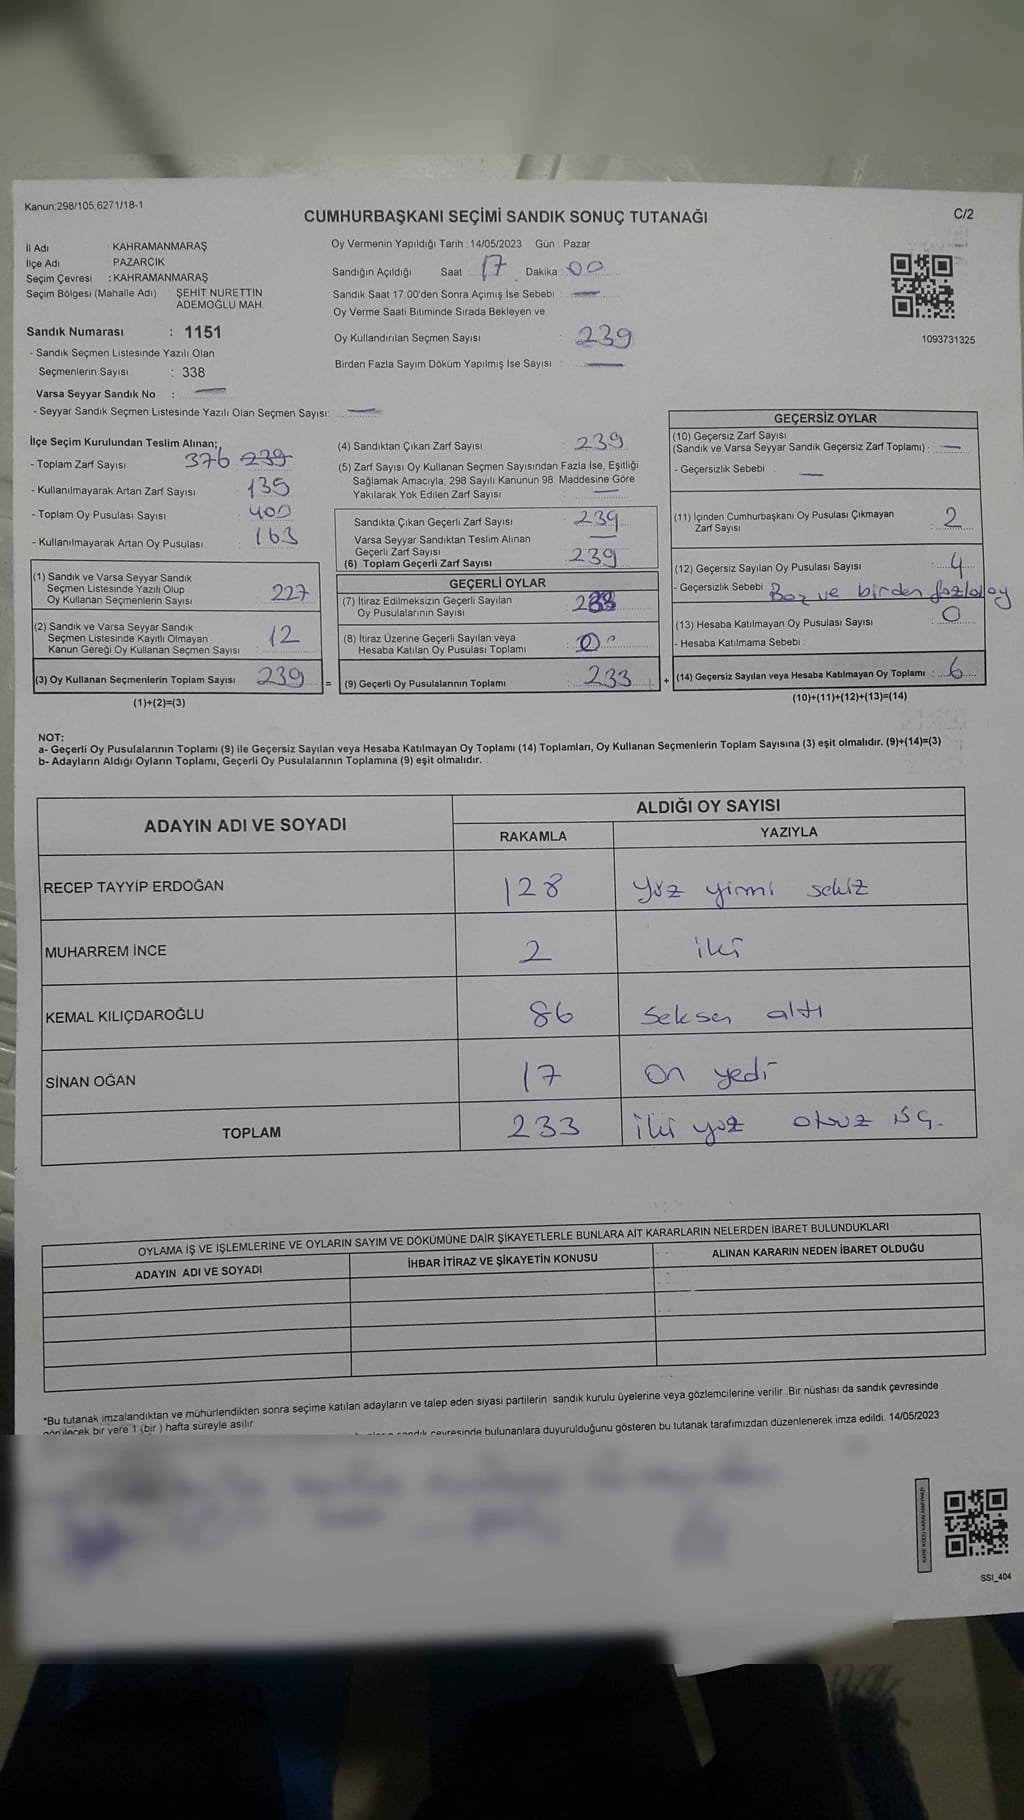 Kanun;298/105;6271/18-1
CUMHURBAŞKANI SEÇİMİ SANDIK SONUÇ TUTANAĞI
C/2
İl Adı KAHRAMANMARAŞ
İlçe Adı PAZARCIK
Seçim Çevresi : KAHRAMANMARAŞ
Seçim Bölgesi (Mahalle Adı) ŞEHİT NURETTIN
ADEMOĞLU MAH.
Sandık Numarası : 1151
- Sandık Seçmen Listesinde Yazılı Olan
Seçmenlerin Sayısı : 338
Varsa Seyyar Sandık No : —
- Seyyar Sandık Seçmen Listesinde Yazılı Olan Seçmen Sayısı: —
Oy Vermenin Yapıldığı Tarih : 14/05/2023 Gün : Pazar
Sandığın Açıldığı Saat : 17 Dakika : 00
Sandık Saat 17:00'den Sonra Açımış İse Sebebi : —
Oy Verme Saati Bitiminde Sırada Bekleyen ve
Oy Kullandırılan Seçmen Sayısı : 239
Birden Fazla Sayım Döküm Yapılmış İse Sayısı : —
1093731325
İlçe Seçim Kurulundan Teslim Alınan;
- Toplam Zarf Sayısı 376 239
- Kullanılmayarak Artan Zarf Sayısı : 135
- Toplam Oy Pusulası Sayısı : 400
- Kullanılmayarak Artan Oy Pusulası : 163
(1) Sandık ve Varsa Seyyar Sandık
Seçmen Listesinde Yazılı Olup
Oy Kullanan Seçmenlerin Sayısı : 227
(2) Sandık ve Varsa Seyyar Sandık
Seçmen Listesinde Kayıtlı Olmayan
Kanun Gereği Oy Kullanan Seçmen Sayısı : 12
(3) Oy Kullanan Seçmenlerin Toplam Sayısı : 239 =
(1)+(2)=(3)
(4) Sandıktan Çıkan Zarf Sayısı : 239
(5) Zarf Sayısı Oy Kullanan Seçmen Sayısından Fazla İse, Eşitliği
Sağlamak Amacıyla; 298 Sayılı Kanunun 98. Maddesine Göre
Yakılarak Yok Edilen Zarf Sayısı : —
Sandıkta Çıkan Geçerli Zarf Sayısı : 239
Varsa Seyyar Sandıktan Teslim Alınan
Geçerli Zarf Sayısı —
(6) Toplam Geçerli Zarf Sayısı : 239
GEÇERLİ OYLAR
(7) İtiraz Edilmeksizin Geçerli Sayılan
Oy Pusulalarının Sayısı : 233
(8) İtiraz Üzerine Geçerli Sayılan veya
Hesaba Katılan Oy Pusulası Toplamı : 0
(9) Geçerli Oy Pusulalarının Toplamı : 233 +
GEÇERSİZ OYLAR
(10) Geçersiz Zarf Sayısı
(Sandık ve Varsa Seyyar Sandık Geçersiz Zarf Toplamı) : —
- Geçersizlik Sebebi : —
(11) İçinden Cumhurbaşkanı Oy Pusulası Çıkmayan
Zarf Sayısı : 2
(12) Geçersiz Sayılan Oy Pusulası Sayısı : 4
- Geçersizlik Sebebi Boz ve birden fazla oy
(13) Hesaba Katılmayan Oy Pusulası Sayısı : 0
- Hesaba Katılmama Sebebi :
(14) Geçersiz Sayılan veya Hesaba Katılmayan Oy Toplamı : 6
(10)+(11)+(12)+(13)=(14)
NOT:
a- Geçerli Oy Pusulalarının Toplamı (9) ile Geçersiz Sayılan veya Hesaba Katılmayan Oy Toplamı (14) Toplamları, Oy Kullanan Seçmenlerin Toplam Sayısına (3) eşit olmalıdır. (9)+(14)=(3)
b- Adayların Aldığı Oyların Toplamı, Geçerli Oy Pusulalarının Toplamına (9) eşit olmalıdır.
ADAYIN ADI VE SOYADI
ALDIĞI OY SAYISI
RAKAMLA YAZIYLA
RECEP TAYYİP ERDOĞAN 128 yüz yirmi sekiz
MUHARREM İNCE 2 iki
KEMAL KILIÇDAROĞLU 86 Seksen altı
SİNAN OĞAN 17 on yedi
TOPLAM 233 iki yüz otuz üç.
OYLAMA İŞ VE İŞLEMLERİNE VE OYLARIN SAYIM VE DÖKÜMÜNE DAİR ŞİKAYETLERLE BUNLARA AİT KARARLARIN NELERDEN İBARET BULUNDUKLARI
ADAYIN ADI VE SOYADI İHBAR İTİRAZ VE ŞİKAYETİN KONUSU ALINAN KARARIN NEDEN İBARET OLDUĞU
*Bu tutanak imzalandıktan ve mühürlendikten sonra seçime katılan adayların ve talep eden siyasi partilerin sandık kurulu üyelerine veya gözlemcilerine verilir .Bir nüshası da sandık çevresinde
görülecek bir yere 1 (bir ) hafta süreyle asılır
sandık çevresinde bulunanlara duyurulduğunu gösteren bu tutanak tarafımızdan düzenlenerek imza edildi. 14/05/2023
SSI_404